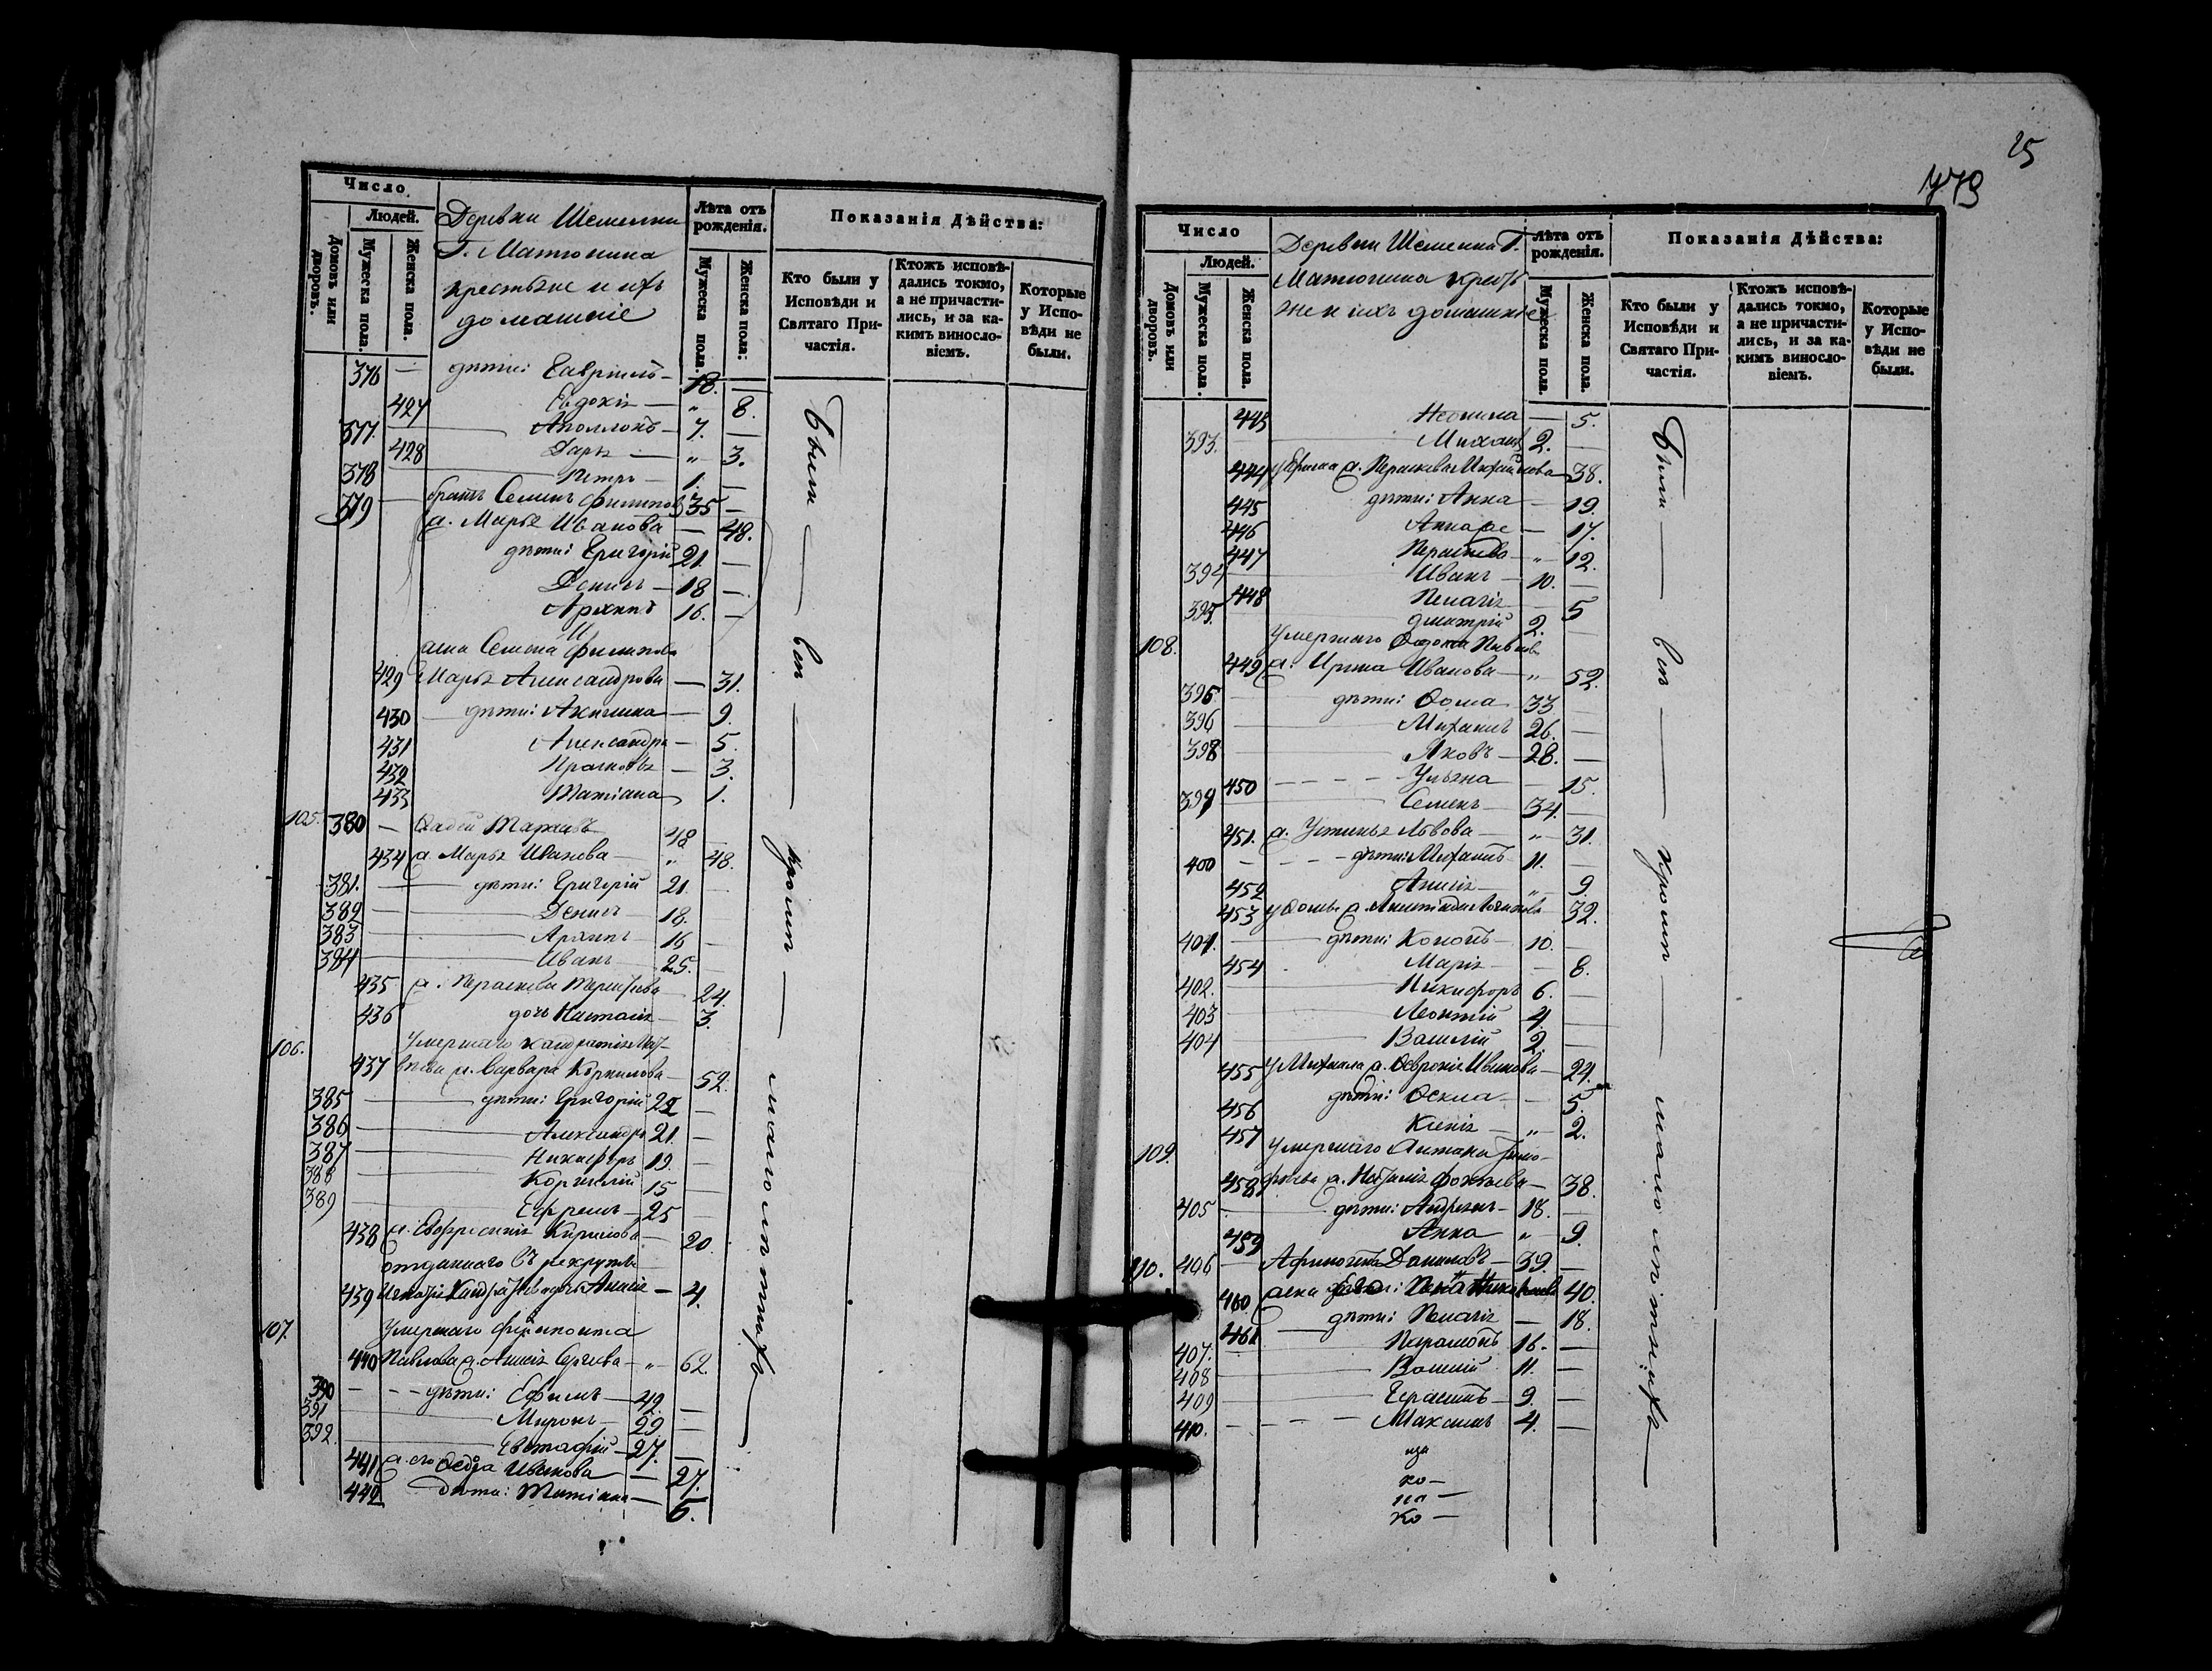 Число
Людей.
Домовъ или дворовъ.
Мужеска пола.
Женска пола.
Деревни Шемелки
Г. Матюнина
крестьяне и ихъ
домашніе
Лѣта отъ рожденія.
Мужеска пола.
Женска пола.
Показанія Дѣйства:
Кто были у Исповѣди и Святаго Причастія.
Ктожъ исповѣдались токмо, а не причастились, и за какимъ винословіемъ.
Которые у Исповѣди не были.
376 — дѣти: Гавріилъ — 18. —
427 Евдокія — „ 8.
377. Аполлонъ — 7. —
428 Дарья — „ 3.
378 Петръ — 1. —
379 — братъ Семенъ Филиповъ 35 —
ж. Марья Иванова — 48.
дѣти: Григорій 21. —
Денисъ — 18 —
Архипъ 16. —
жена Семена Филипова
429 Марья Александрова — 31.
430 — дѣти: Акилина — 9.
431 Александра — 5.
432 Прасковья — 3.
433 Татіана 1.
105. 380 — Фадей Марковъ 48
434 ж. Марья Иванова — „ 48.
381. — дѣти: Григорій 21. —
382 — Денисъ — 18.
383 — Архипъ — 16 —
384 — Иванъ — 25. —
435 ж. Параскева 24.
436 дочь Наталія 3.
106. Умершаго
437 ж. Варвара Корнилова — 52.
385 — дѣти: Григорій 22 —
386 — Александръ 21. —
387 — Никифоръ 19. —
388 — Корнилій 15 —
389 — Ефремъ — 25 —
438 ж. Евфросинія Кирилова — 20.
отданнаго въ рекруты
439 дочь Анисія — 4.
107. Умершаго
440 Павлова ж. Анисія Сергѣева — „ 62.
390 — дѣти: Ефимъ — 49. —
391 Миронъ — 29 —
392. Евстафій — 27. —
441 ж. его Ѳедора Иванова — 27.
442 дѣти: Татіана — 6.
Были — всѣ — кромѣ — малолѣтнихъ —
25
479
Число
Людей.
Домовъ или дворовъ.
Мужеска пола
Женска пола.
Деревни Шемелки Г.
Матюнина кресть
яне и ихъ домашніе
Лѣта отъ рожденія.
Мужеска пола.
Женска пола.
Показанія Дѣйства:
Кто были у Исповѣди и Святаго Причастія.
Ктожъ исповѣдались токмо, а не причастились, и за какимъ винословіемъ.
Которые у Исповѣди не были.
443 — 5.
393. Михаилъ 2. —
444 у Ефима ж. Параскева Михайлова — 38.
445 дѣти: Анна — 19.
446 Анна — 17.
447 Параскева — „ 12.
394 Иванъ — 10. —
448 Пелагія — 5
395. Дмитрій 2. —
108. Умершаго Павлова
449 ж. Ирина Иванова — „ 52.
395. дѣти: Ѳома 33
396 Михаилъ 26. —
398 Яковъ — 28. —
450 Ульяна — 15.
399 Семенъ — 34. —
451. ж. Устинья Львова — „ 31.
400 — дѣти: Михаилъ 11. —
452 Анисія — „ 9.
453 у Ѳомы ж. 32.
401. — дѣти: Кононъ — 10. —
454 Марія — 8.
402. Никифоръ 6. —
403 Леонтій 4. —
404 Василій 2. —
455 у Михаила ж. Ѳевронія Иванова — 24.
456 дѣти: Ѳекла — 5.
457 Ксенія — „ 2.
109. Умершаго Антона Тимо-
458 фѣева ж. Наталія 38.
405 дѣти: Андрей — 18. —
459 Анна „ 9.
110. 406 — 39. —
460 жена его 40.
461 — дѣти: Пелагія — 18.
407. — Парамонъ 16. —
408 Василій 11. —
409 Герасимъ — 9. —
410. Максимъ 4. —
ко —
ко —
Были — всѣ — кромѣ — малолѣтнихъ —